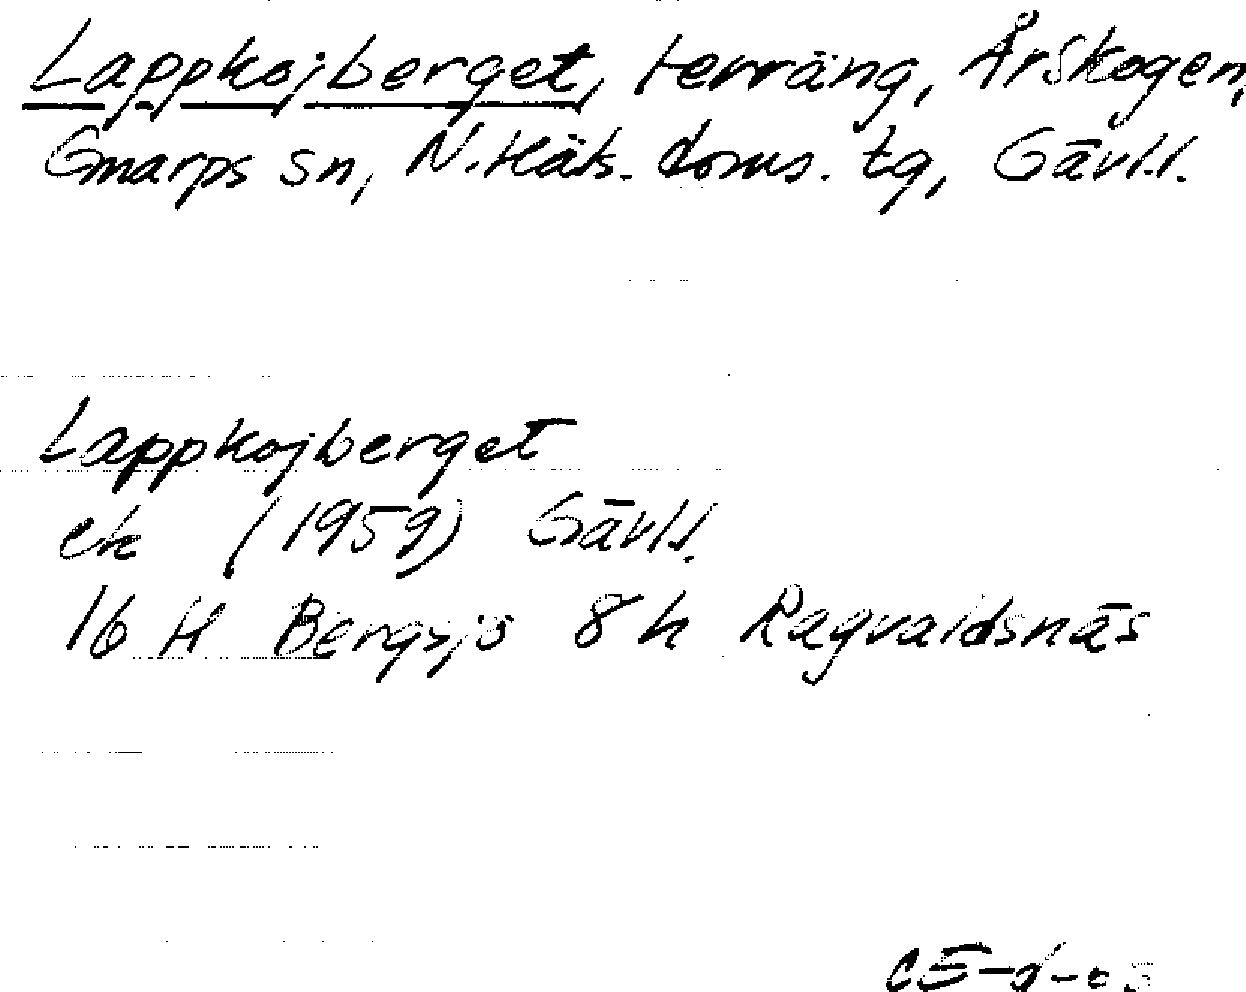 Lappkojberget, terräng, Årskogen,
Gnarps sn, N. Häls. doms. tg, Gävl.l.
Lappkojberget
ek (1959) Gävl.l.
16 H Bergsjö 8 h Ragvaldsnäs